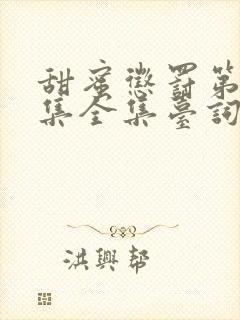 甜蜜懲罰第
集全集臺詞
洪興幫